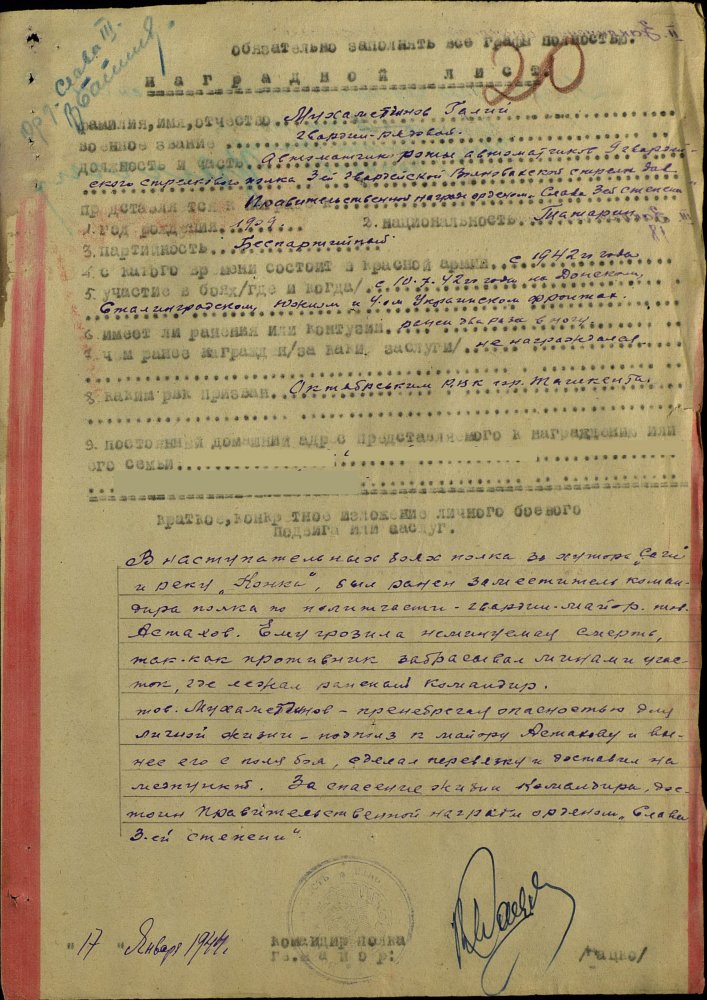 Орд. Слава III.
обязательно заполнять все графы полностью.
20
наградной лист.
фамилия, имя, отчество Мухаметьянов Галий
военное звание гвардии-рядовой.
должность и часть Автоматчик роты автоматчиков 9 гвардей-
ского стрелкового полка 3-ей гвардейской Волновахской стрелк. див.
представляется к Правительственной награде орденом „Слава 3-ей степени"
1. год рождения 1909 2. национальность Татарин
3. партийность Беспартийный
4. с какого времени состоит в красной армии с 1942-го года
5. участие в боях /где и когда/ с 10.7.42-го года на Донском,
Сталинградском, Южном и 4-ом Украинском фронтах.
6. имеет ли ранения или контузии ранен два раза в ногу.
7. чем ранее награжден /за каки заслуги/ не награждался.
8. каким рвк призван Октябрьским РВК гор. Ташкента.
9. постоянный домашний адрес представляемого к награждению или
его семьи
краткое, конкретное изложение личного боевого
подвига или заслуг.
В наступательных боях полка за хутора „Саги"
и реку „Конка", был ранен заместитель коман-
дира полка по политчасти - гвардии-майор тов.
Астахов. Ему грозила неминуемая смерть,
так-как противник забрасывал минами учас-
ток, где лежал раненый командир.
тов. Мухаметьянов - пренебрегая опасностью для
личной жизни - подполз к майору Астахову и вы-
нес его с поля боя, сделал перевязку и доставил на
медпункт. За спасение жизни командира, дос-
тоин Правительственной награды орденом „Слава
3-ей степени".
"17" Января 1944 г.
командир полка
гв. майор: /Яацко/